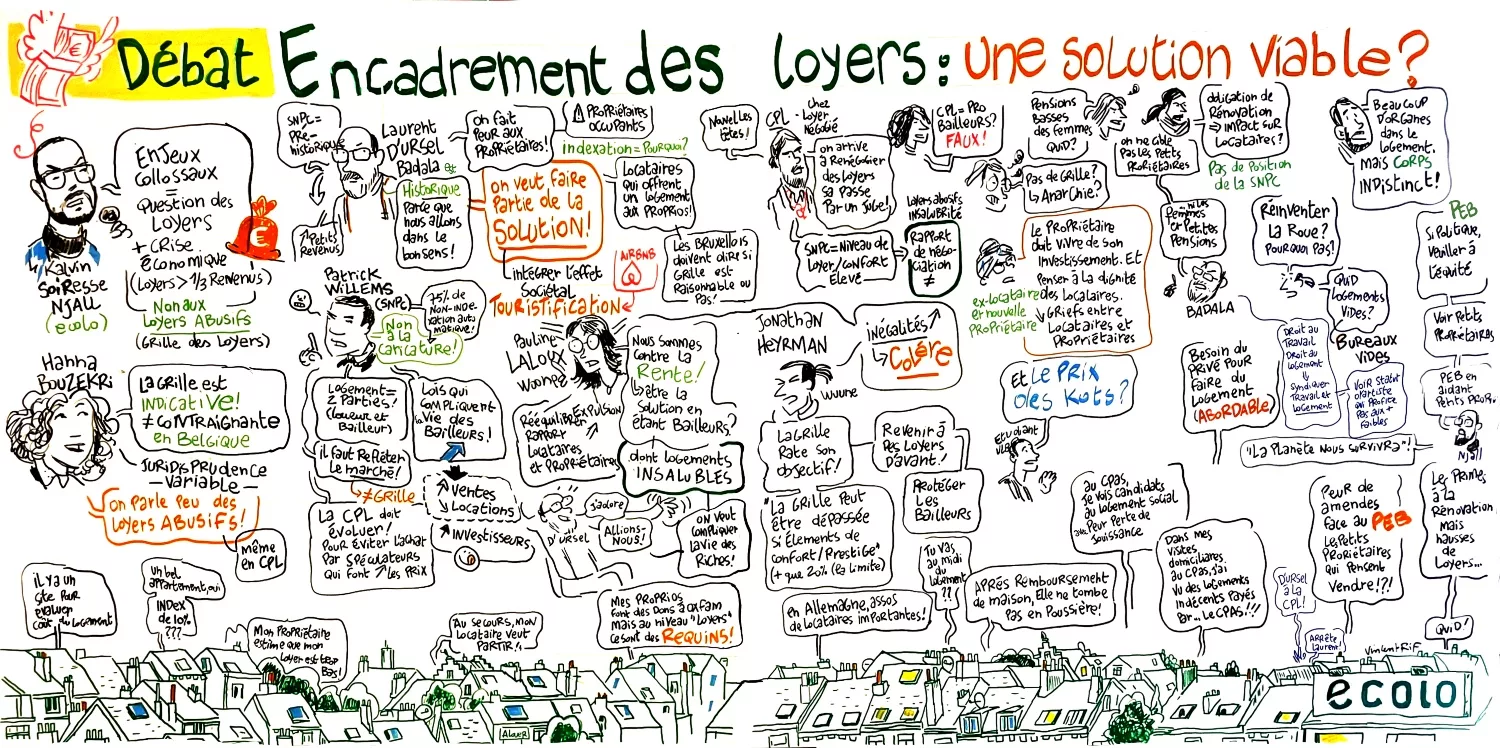 Débat Encadrement des loyers : une solution viable ?
Enjeux
collossaux
=
question des
loyers
+ crise
économique
(loyers > 1/3 revenus)
Non aux
loyers abusifs
(Grille des loyers)
Kalvin
Soiresse
Njall
(ecolo)
Hanna
Bouzekri
La grille est
indicative!
≠ contraignante
en Belgique
Jurisprudence
-variable-
on parle peu des
loyers abusifs!
même
en CPL
SNPC=
Pré-
historique
↗ Petits
revenus
Laurent
d'Ursel
Badala est
Historique
parce que
nous allons
dans le
bon sens!
on fait
peur aux
propriétaires!
⚠ Propriétaires
occupants
indexation = Pourquoi?
on veut faire
partie de la
solution!
Locataires
qui offrent
un logement
aux proprios!
intégrer l'effet
sociétal
Touristification
AIRBNB
Les Bruxellois
doivent dire si
grille est
raisonnable ou
pas!
Patrick
Willems
(SNPC)
Non
à la
caricature!
75% de
non-inde-
xation auto
matique!
Logement=
2 parties!
(loueur et
bailleur)
il faut refléter
le marché!
→ ≠ Grille
La CPL doit
évoluer!
pour éviter l'achat
par spéculateurs
qui font ↗ les prix
Lois qui
compliquent
la vie des
bailleurs!
↗ Ventes
↘ Locations
↗ investisseurs
Pauline
Laloux
Woonpa
Nous sommes
contre la
Rente!
↳ être la
solution en
étant bailleurs?
dont logements
insalubles
Rééquilibrer
rapport
locataires
et propriétaires
Expulsion
↗
D'Ursel
J'adore
Allions-
nous!
on veut
compliquer
la vie des
riches!
Mes proprios
font des dons à Oxfam
mais au niveau "loyers"
ce sont des Requins!
Nouvelles
têtes!
CPL -
Chez
Loyer
Négocié
on arrive
à renégocier
des loyers
sa passe
par un juge!
SNPC= Niveau de
loyer/confort
élevé
CPL = pro
bailleurs?
FAUX!
loyers abusifs
insalubrité
Rapport
de négo-
ciation
≠
Jonathan
Heyrman
wuune
inégalités ↗
↳ Colère
La grille
rate son
objectif!
Revenir à
des loyers
d'avant!
Protéger
les
bailleurs
"La grille peut
être dépassée
si éléments de
confort/prestige"
(+ que 20% (la limite)
en Allemagne, assos
de locataires importantes!
Tu vas
au midi
du
logement
??
Après remboursement
de maison, elle ne tombe
pas en poussière!
Pensions
basses
des femmes
quid?
on ne cible
pas les petits
propriétaires
obligation de
rénovation
⇒ impact sur
locataires?
Pas de position
de la SNPC
Beaucoup
d'organes
dans le
logement,
mais corps
indistinct!
Pas de grille?
↳ Anarchie?
Le propriétaire
doit vivre de son
investissement. Et
penser à la dignité
des locataires.
↓ Griefs entre
locataires et
propriétaires
ex-locataire
et nouvelle
propriétaire
... ni les
femmes
et petites
pensions
Badala
Réinventer
la roue?
Pourquoi pas!
Quid
logements
vides?
Bureaux
vides
Droit au
travail
Droit au
logement
⇓
syndiquer
travail et
logement
Voir statut
d'artiste
qui profite
pas aux +
faibles
PEB
si politique,
veiller à
l'équité
Voir petits
propriétaires
PEB en
aidant
petits propr.
Njall
Et le prix
des kots?
étudiant
ULB
Besoin du
privé pour
faire du
logement
(abordable)
"La planète nous survivra"!
Au CPAS,
je vois candidats
au logement social
avec peur perte de
jouissance
Dans mes
visites
domiciliaires
au CPAS, j'ai
vu des logements
indécents payés
par... le CPAS!!!
Peur de
amendes
face au PEB
Les petits
propriétaires
qui pensent
vendre!?!
Les primes
à la
rénovation
mais
hausses
de
loyers...
Quid!
D'Ursel
à la
CPL!
Arrête,
Laurent!
il y a un
site pour
évaluer
coût du logement
un bel
appartement, oui
index
de 10%
???
Mon propriétaire
estime que mon
loyer est trop
bas!
Au secours, mon
locataire veut
partir!
Alouer
VincentRif
ecolo